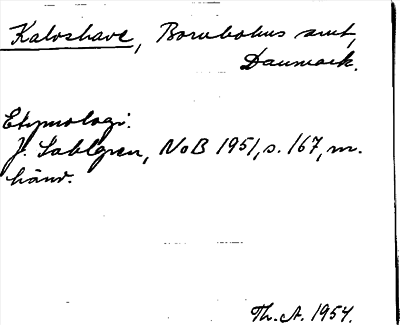 Kalvshave, Bornholms amt,
Danmark.
Etymologi.
J. Sahlgren, NoB 1951, s. 167, m.
hänv.
Th. A. 1954.